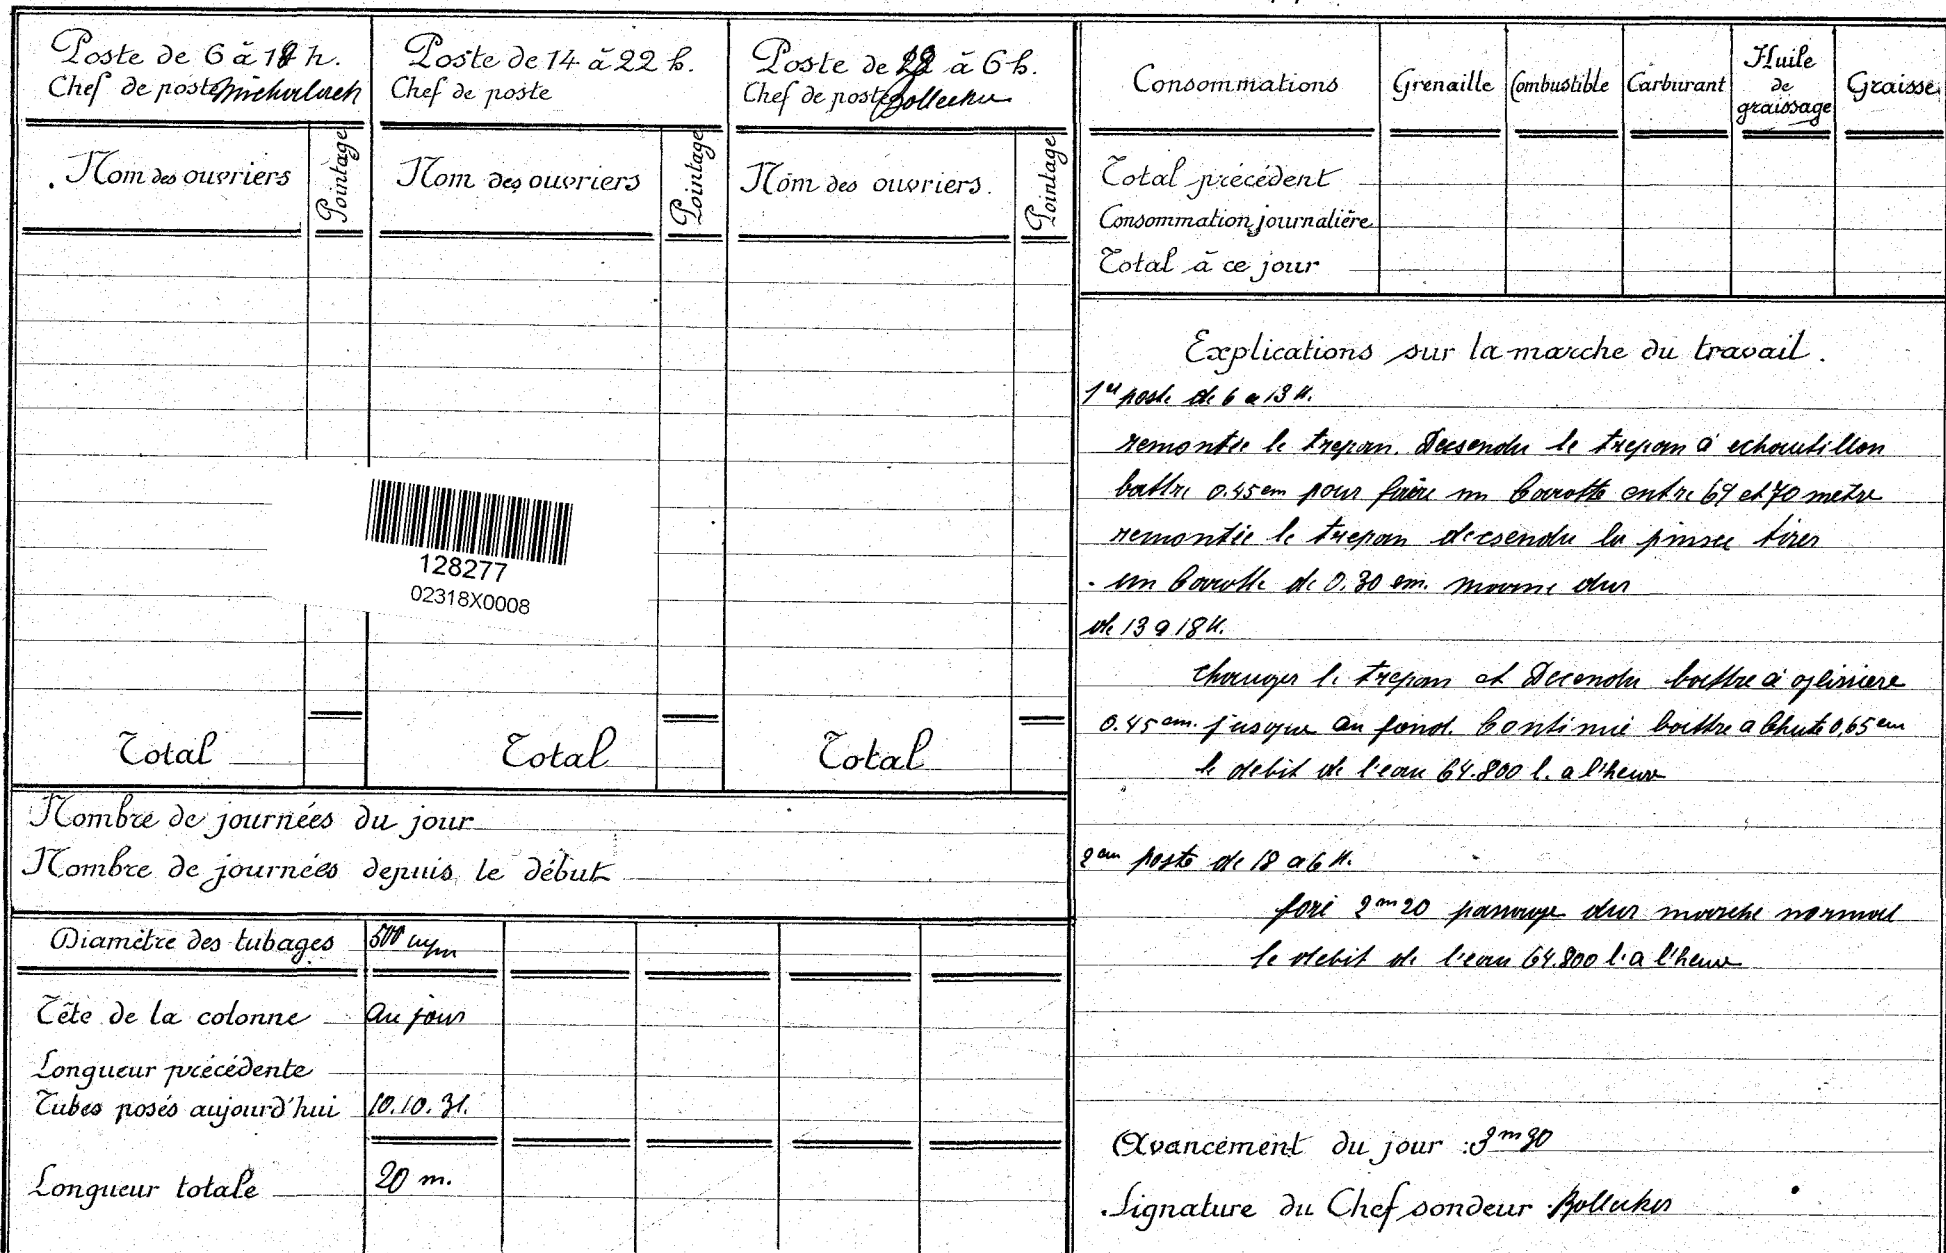 Poste de 6 à 18 h.
Chef de poste
Nom des ouvriers
Pointage
Total
Poste de 14 à 22 h.
Chef de poste
Nom des ouvriers
Pointage
Total
Poste de 18 à 6 h.
Chef de poste Bollecker
Nom des ouvriers.
Pointage
Total
128277
02318X0008
Nombre de journées du jour
Nombre de journées depuis le début
Diamètre des tubages 500 m/m
Tête de la colonne au jour
Longueur précédente
Tubes posés aujourd'hui 10.10.31.
Longueur totale 20 m.
Consommations Grenaille Combustible Carburant Huile de graissage Graisse
Total précédent
Consommation journalière
Total à ce jour
Explications sur la marche du travail.
1er poste de 6 a 13 H.
remontée le trepan. Decsendu le trepan à echantillon
battre 0.45 cm pour faire un Carotte entre 69 et 70 metre
remontée le trepan decsendu la pinsee tirer
un Carotte de 0.30 cm. marne dur
de 13 a 18 H.
Changer le trepan et Decendu battre à glissiere
0.45 cm. jusque au fond. Continué battre a Chute 0,65 cm
le debit de l'eau 64.800 l. a l'heure
2em poste de 18 a 6 H.
foré 2m20 passage dur marche normal
le debit de l'eau 64.800 l. a l'heure
Avancement du jour :
Signature du Chef sondeur : Bollecker